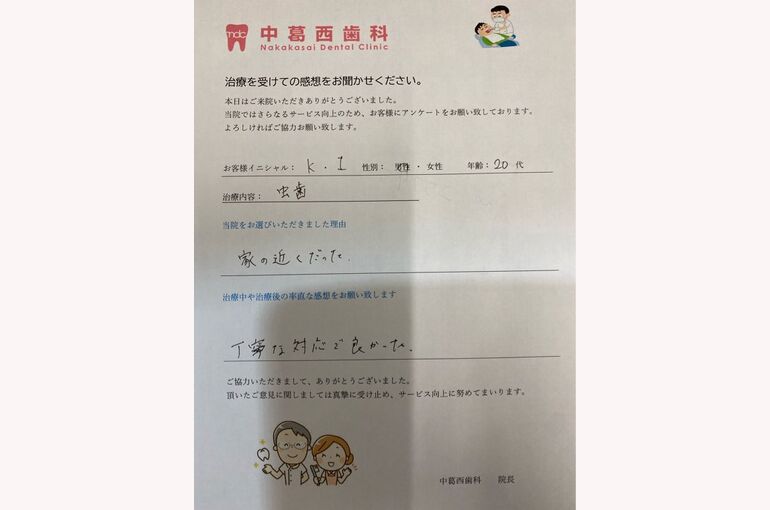 mdc 中葛西歯科
Nakakasai Dental Clinic
治療を受けての感想をお聞かせください。
本日はご来院いただきありがとうございました。
当院ではさらなるサービス向上のため、お客様にアンケートをお願い致しております。
よろしければご協力お願い致します。
お客様イニシャル： K . I 性別： 男性 ・ 女性 年齢：20 代
治療内容： 虫歯
当院をお選びいただきました理由
家の近くだった.
治療中や治療後の率直な感想をお願い致します
丁寧な対応で良かった.
ご協力いただきまして、ありがとうございました。
頂いたご意見に関しましては真摯に受け止め、サービス向上に努めてまいります。
中葛西歯科 院長